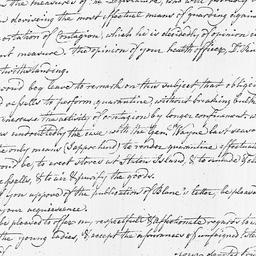 the measures of the Legislature, who were
devising the most effectual means of guarding against
ortation of Contagion, which he is decidedly of opinion is
measure, the opinion of your health officer, D.
twithstanding.
ould beg leave to remark on this subject that obligin
d vessells to perform quarantine, without breaking bulk
increase the activity of Contagion by longer confinement, w
as undoubtedly the case with the Gen. Wayne last seaso
he only means (I apprehend) to render quarantine effectual
ould be to erect stores at Staten Island, & to unlade &
vessells, & to air & purify the goods.
you approve of the publication of Blane's letter, be pleased
your acquiescence.
be pleased to offer my respectfull & affectionate regards to
the young ladies, & accept the assurances of unfeigned
your devoted